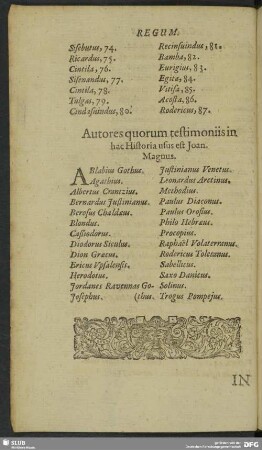 REGUM.
Sisebutus, 74.
Ricardus, 75.
Cintila, 76.
Sisenandus, 77.
Cintila, 78.
Tulgas, 79.
Cindasuindus, 80.
Recinsuindus, 81.
Bamba, 82.
Eurigius, 83.
Egita, 84.
Vitisa, 85.
Acosta, 86.
Rodericus, 87.
Autores quorum testimoniis in
hac Historia usus est Joan.
Magnus.
ABlabius Gothus.
Agathius.
Albertus Crantzius.
Bernardus Justinianus.
Berosus Chaldæus.
Blondus.
Cassiodorus.
Diodorus Siculus.
Dion Græcus.
Ericus Vpsalensis.
Herodotus.
Jordanes Ravennas Go-
Josephus. (thus.
Justinianus Venetus.
Leonardus Aretinus.
Methodius.
Paulus Diaconus.
Paulus Orosius.
Philo Hebræus.
Procopius.
Raphaël Volaterranus.
Rodericus Toletanus.
Sabellicus.
Saxo Danicus.
Solinus.
Trogus Pompejus.
IN
SLUB
DFG